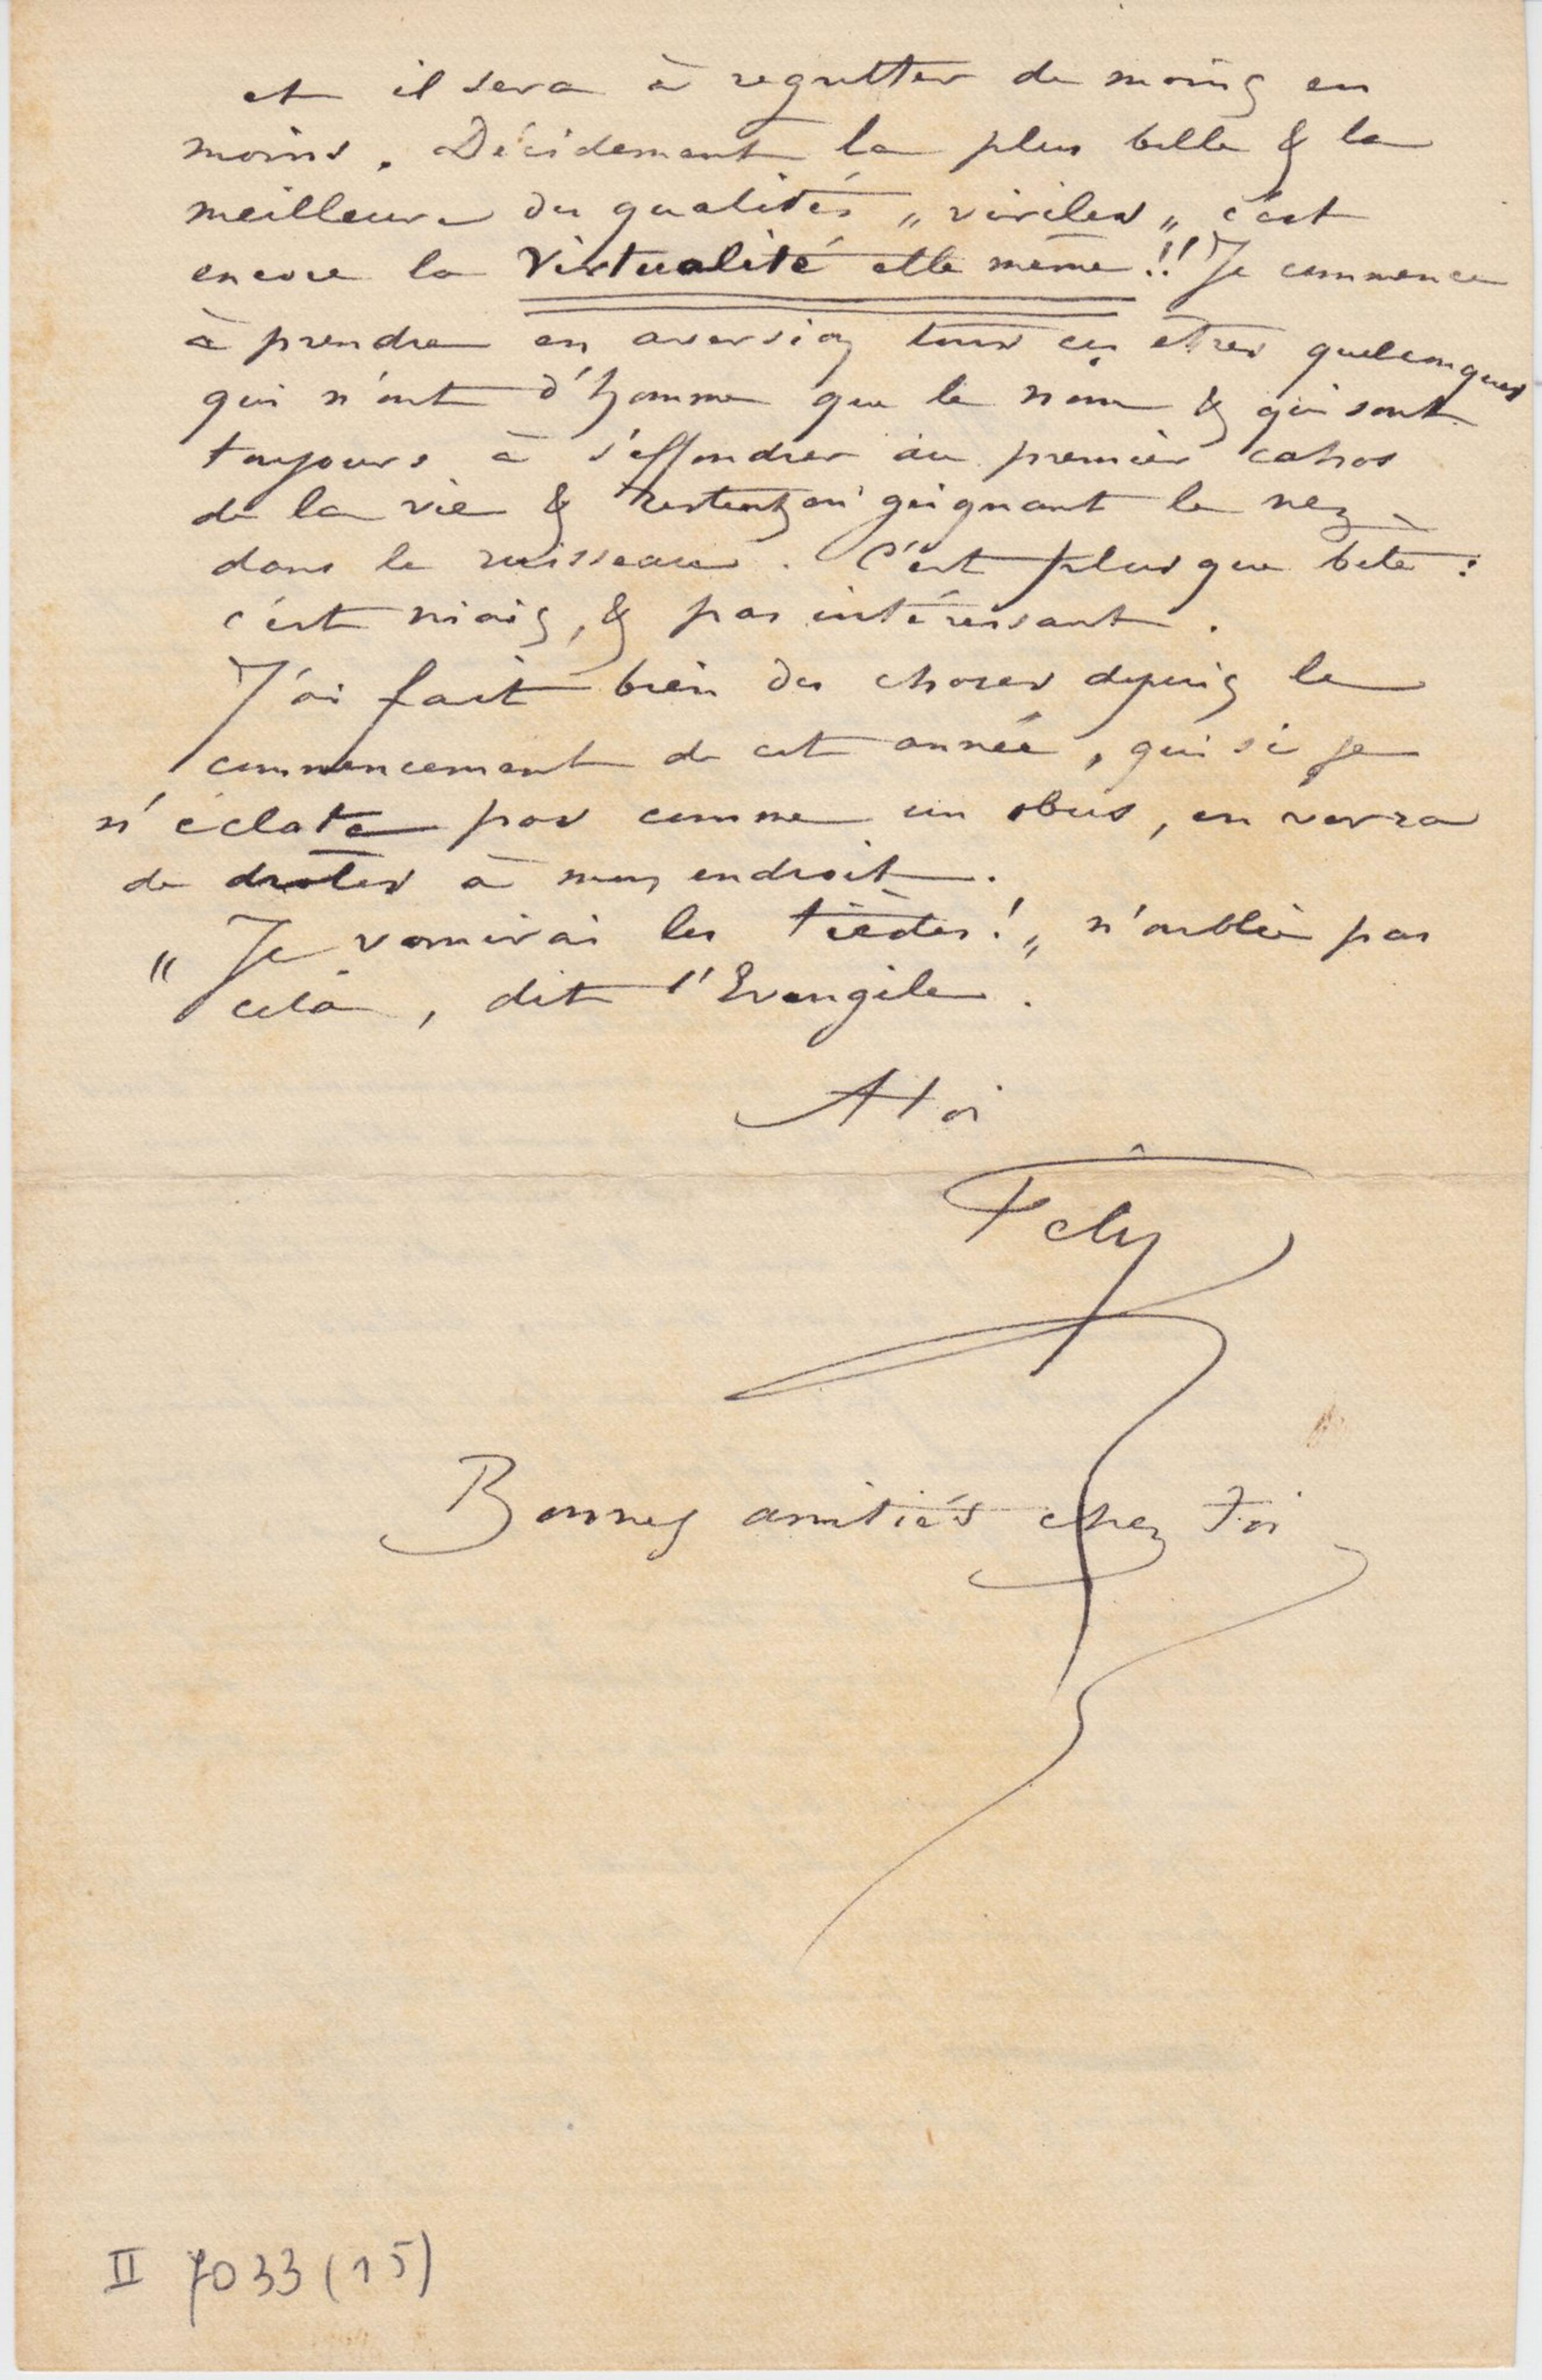 et il sera à regretter de moins en
moins. Décidemant la plus belle & la
meilleure des qualités „ viriles „ c'est
encore la Virtualité elle même !! Je commence
à prendre en aversion tous ces êtres quelconques
qui n'ont d'homme que le nom & qui sont
toujours à s'effondrer au premier cahos
de la vie & restent geignant le nez
dans le ruisseau. C'est plus que bête :
c'est niais, & pas intéressant.
J'ai fait bien des choses depuis le
commencement de cet année, qui si je
n'éclate pas comme un obus, en verra
de drôles à mon endroit.
„ Je vomirai les tièdes ! „ n'oublie pas
cela, dit l'Evangile.
A toi
Fély
Bonnes amitiés chez toi
II 7033 (15)